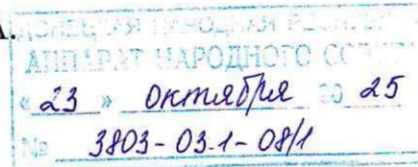 ДОНЕЦКАЯ НАРОДНАЯ
АППАРАТ НАРОДНОГО
« 23 » октября 20 25
№ 3803-03.1-08/1